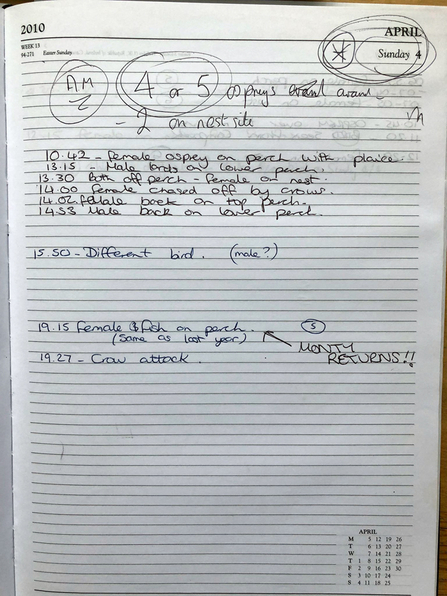 2010
APRIL
WEEK 13
94-271 Easter Sunday
Sunday 4
AM
4 or 5 ospreys
- 2 on nest site
10.42 - Female osprey on perch with plaice.
13.15 - Male lands on lower perch.
13.30 Both off perch - female on nest.
14.00 Female chased off by crows.
14.02 Female back on top perch.
14.53 Male back on lower perch.
15.50 - Different bird. (male?)
19.15 Female & fish on perch. 5
(same as last year)
MONTY
RETURNS!!
19.27 - Crow attack.
APRIL
M 5 12 19 26
T 6 13 20 27
W 7 14 21 28
T 1 8 15 22 29
F 2 9 16 23 30
S 3 10 17 24
S 4 11 18 25